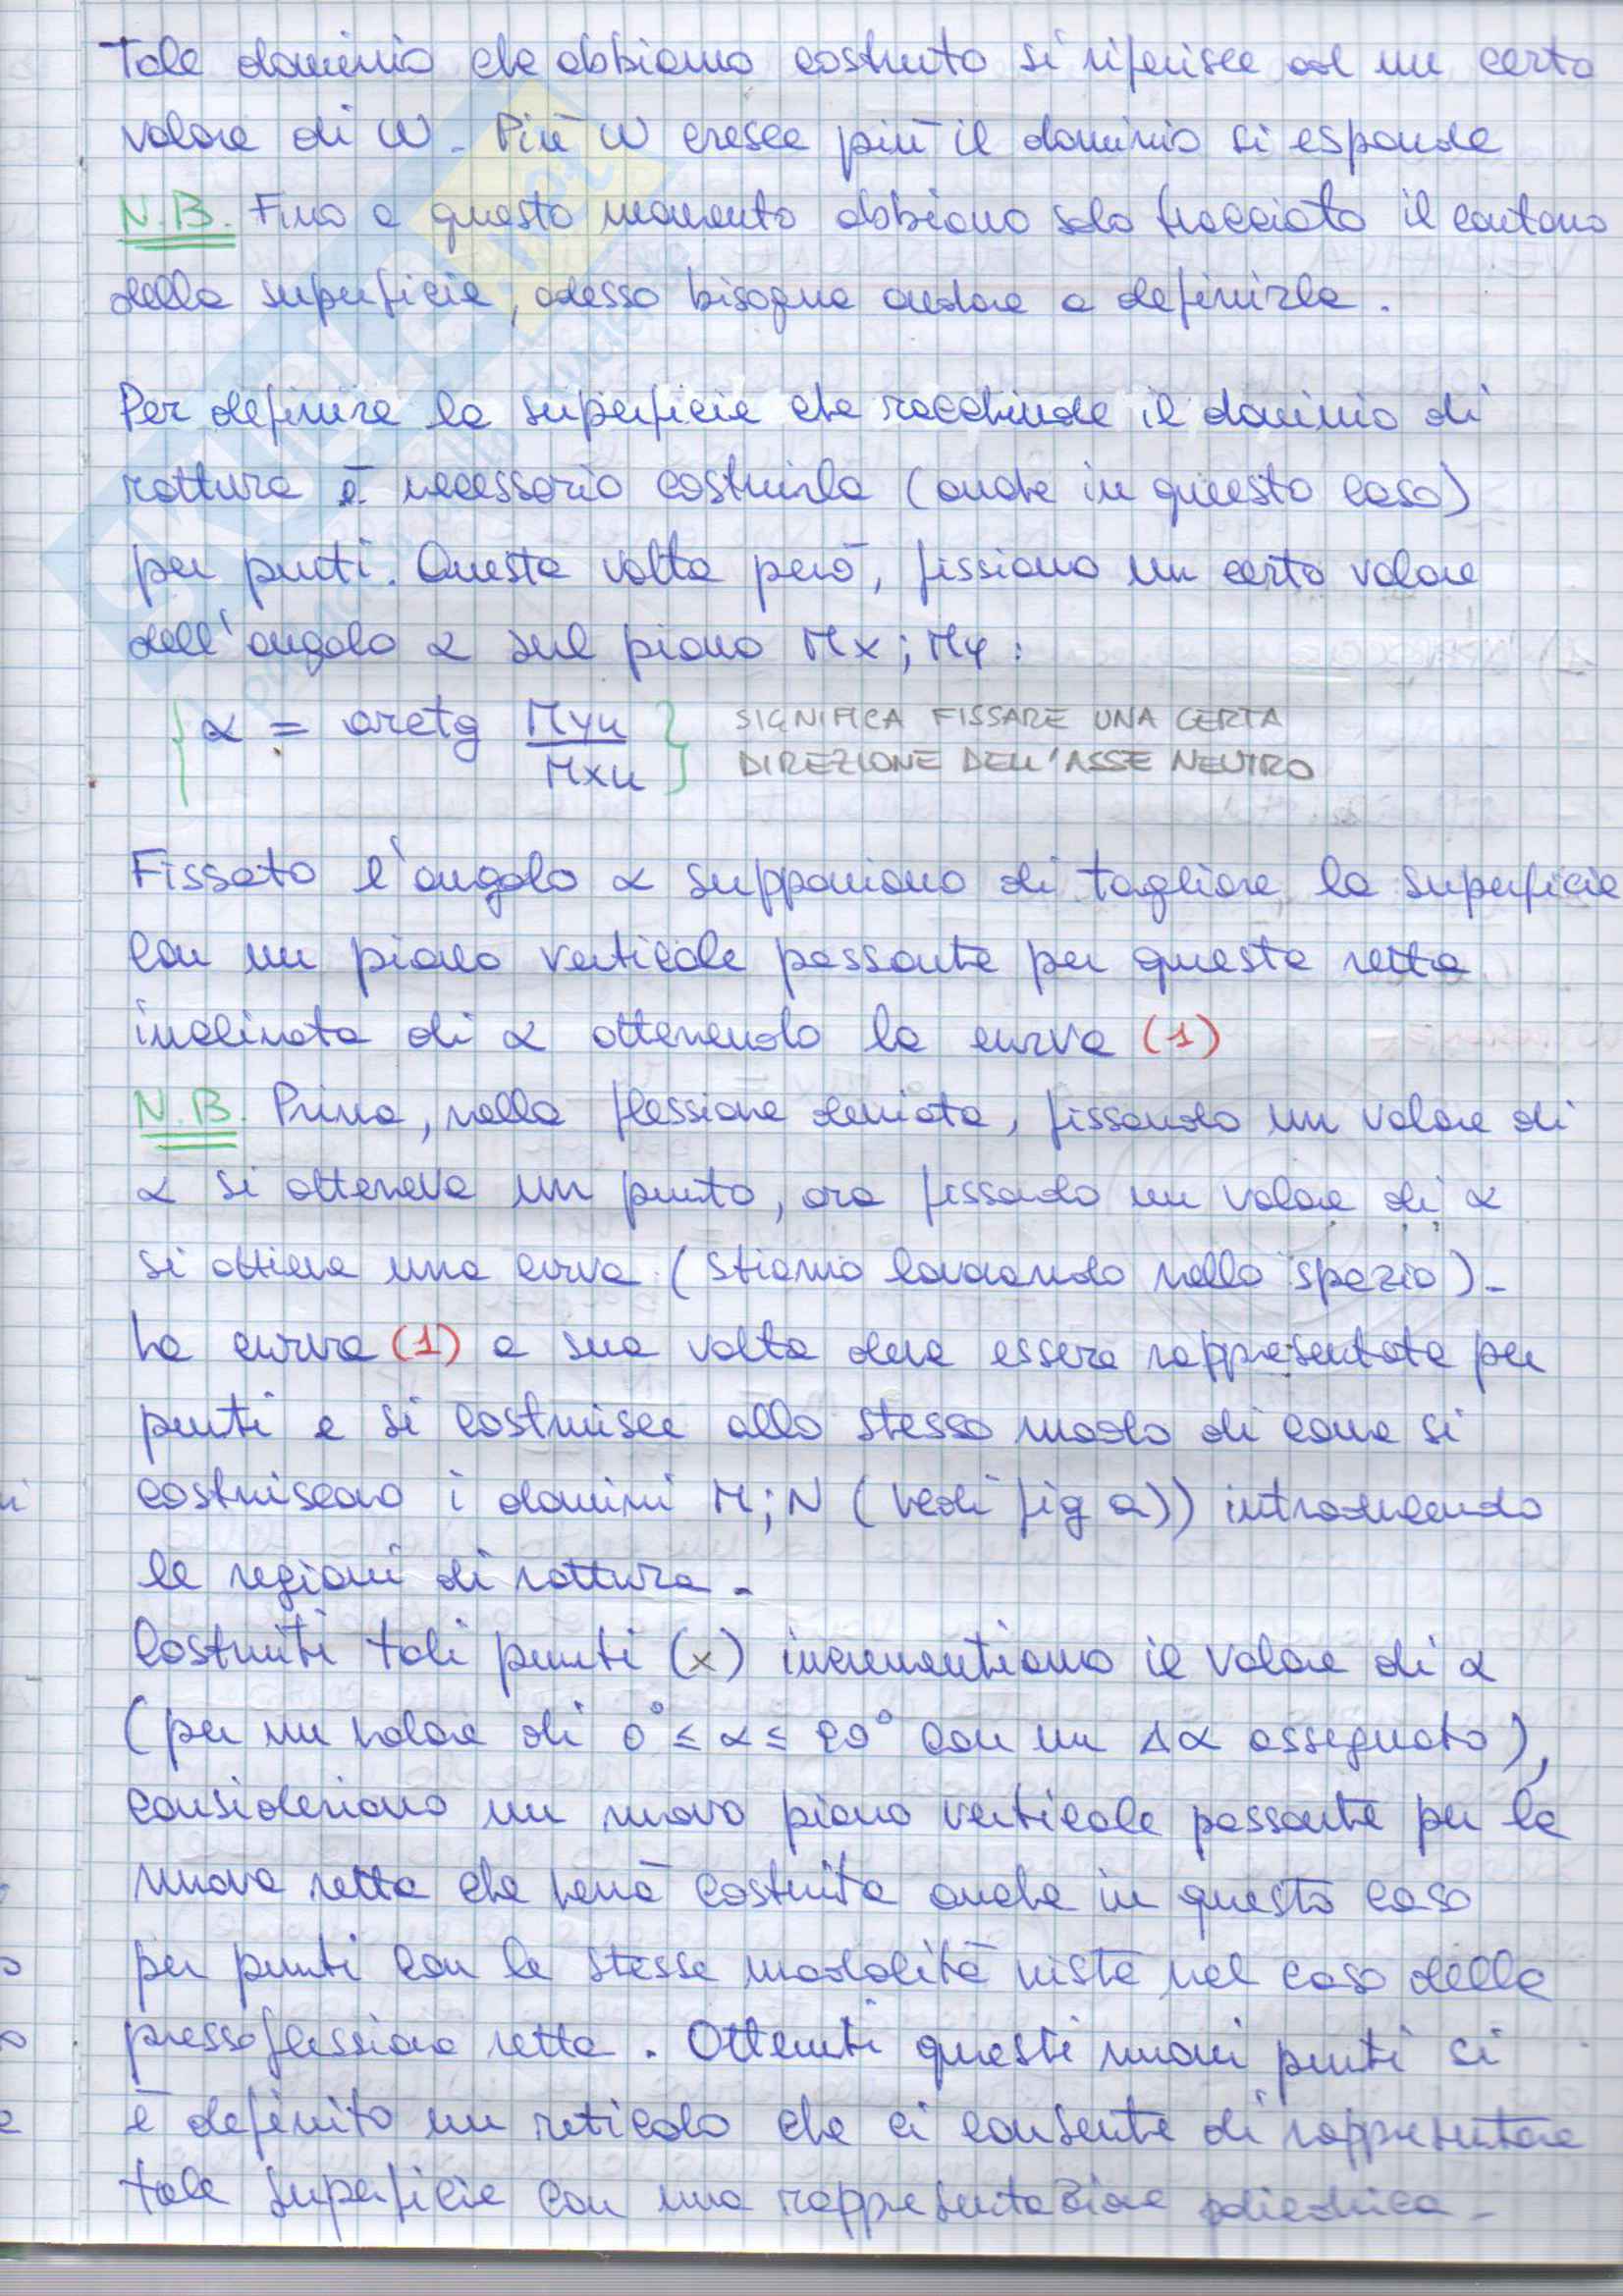 Tale dominio che abbiamo costruito si riferisce ad un certo
valore di ω. Più ω cresce più il dominio si espande
N.B. Fino a questo momento abbiamo solo tracciato il contorno
della superficie, adesso bisogna andare a definirla.
Per definire la superficie che racchiude il dominio di
rottura è necessario costruirla (anche in questo caso)
per punti. Questa volta però, fissiamo un certo valore
dell'angolo α sul piano Mx; My:
α = arctg Myu / Mxu SIGNIFICA FISSARE UNA CERTA
DIREZIONE DELL'ASSE NEUTRO
Fissato l'angolo α supponiamo di tagliare la superficie
con un piano verticale passante per questa retta
inclinata di α ottenendo la curva (1)
N.B. Prima, nella flessione deviata, fissando un valore di
α si otteneva un punto, ora fissando un valore di α
si ottiene una curva (stiamo lavorando nello spazio).
La curva (1) a sua volta deve essere rappresentata per
punti e si costruisce allo stesso modo di come si
costruiscono i domini M; N (vedi fig a)) introducendo
le regioni di rottura.
Costruiti tali punti (x) incrementiamo il valore di α
(per un valore di 0° ≤ α ≤ 90° con un Δα assegnato),
consideriamo un nuovo piano verticale passante per la
nuova retta che verrà costruita anche in questo caso
per punti con le stesse modalità viste nel caso della
pressoflessione retta. Ottenuti questi nuovi punti si
è definito un reticolo che ci consente di rappresentare
tale superficie con una rappresentazione poliedrica.